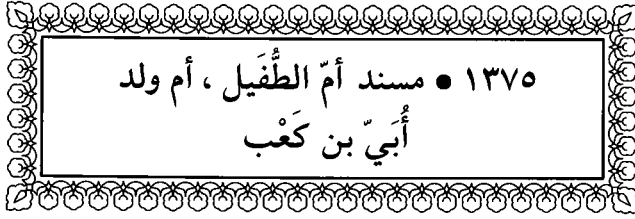 ١٣٧٥ • مسند أمّ الطُّفَيل ، أم ولد
أُبَيّ بن كَعْب